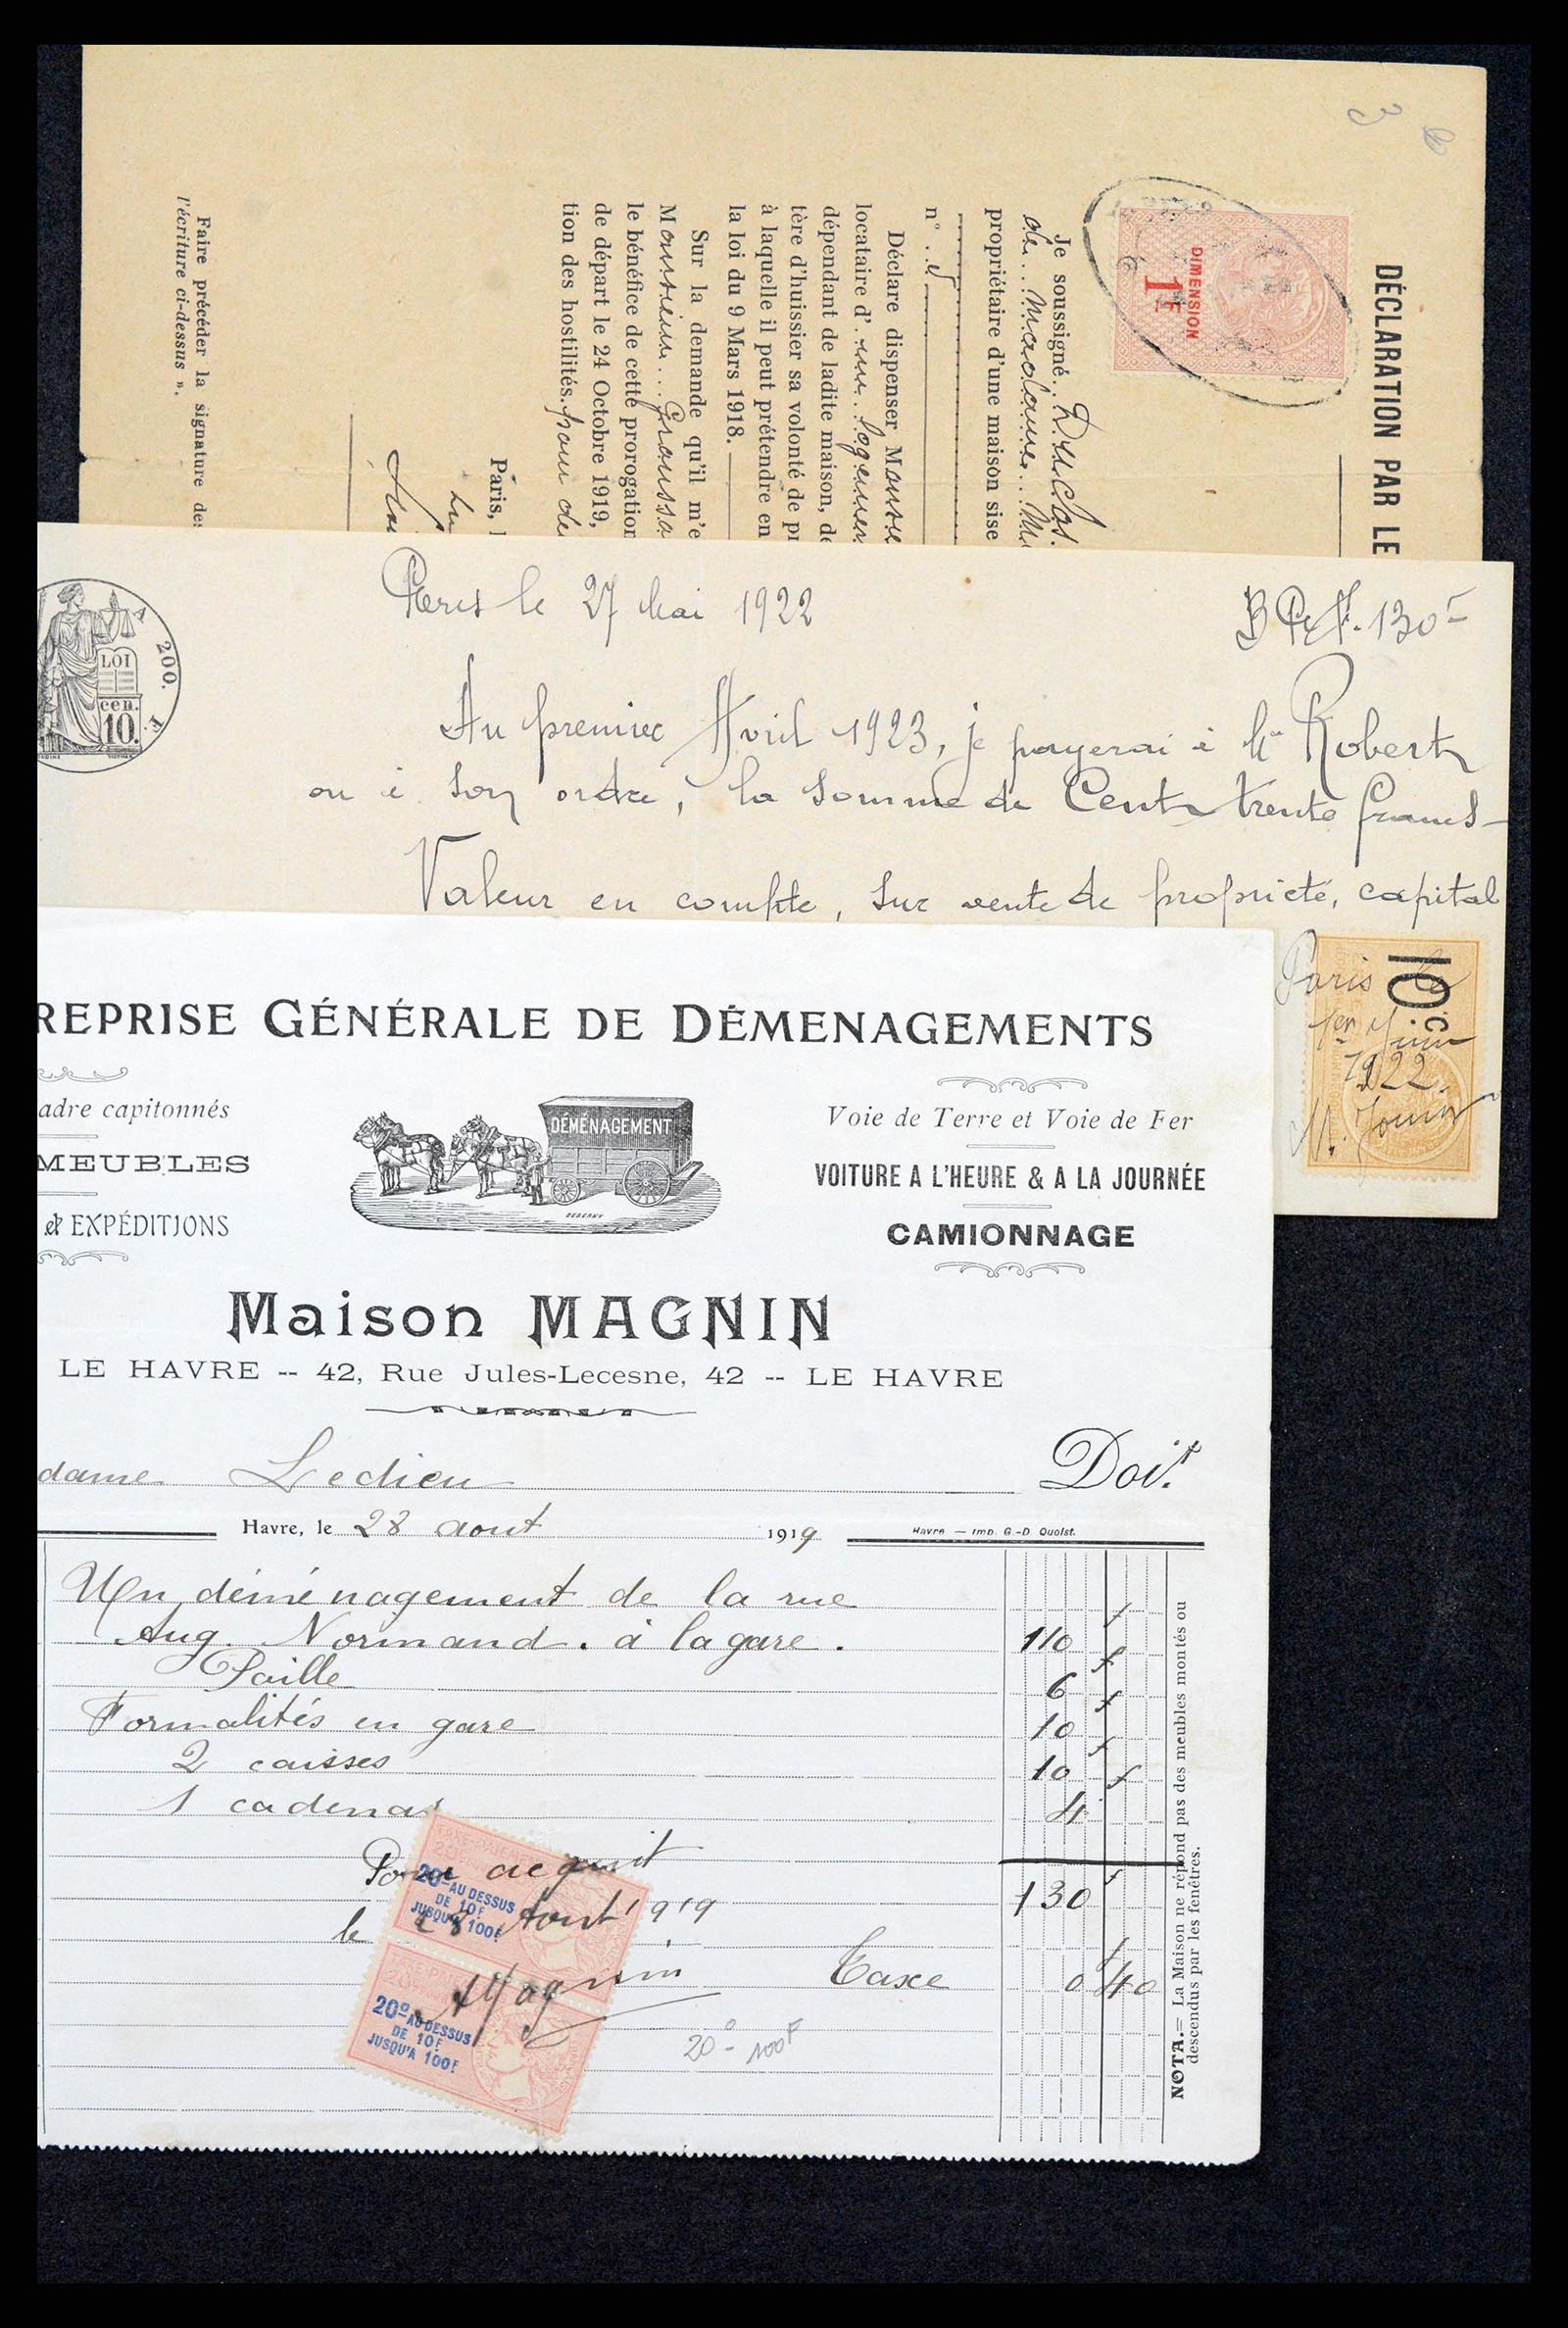 3
DÉCLARATION PAR LE
DIMENSION
1F
Je soussigné Duclos
de Madame
propriétaire d'une maison sise
n° 5
Déclare dispenser
locataire d'un logemen
dépendant de ladite maison, de
tère d'huissier sa volonté de pr
à laquelle il peut prétendre en
la loi du 9 Mars 1918.
Sur la demande qu'il m'e
Monsieur Grousso
le bénéfice de cette prorogation
de départ le 24 Octobre 1919,
tion des hostilités. pour de
Paris, l
Faire précéder la signature des
l'écriture ci-dessus ».
A 200. F.
LOI
cen.
10.
Paris le 27 Mai 1922
B.P.F. 130 F
Au premier Avril 1923, je payerai à Mr Robert
ou à son ordre, la somme de Cent trente francs
Valeur en compte, sur vente de propriété, capital
10 c
Paris le
1er Juin
1922.
M. Jouin
REPRISE GÉNÉRALE DE DÉMENAGEMENTS
adre capitonnés
MEUBLES
et EXPÉDITIONS
DÉMÉNAGEMENT
DEBERNY
Voie de Terre et Voie de Fer
VOITURE A L'HEURE & A LA JOURNÉE
CAMIONNAGE
Maison MAGNIN
LE HAVRE -- 42, Rue Jules-Lecesne, 42 -- LE HAVRE
dame Ledieu Doit
Havre, le 28 aout 1919
Havre — Imp. G.-D. Quoist.
Un déménagement de la rue
Aug. Normand. à la gare. 110 f
Paille 6 f
Formalités en gare 10 f
2 caisses 10 f
1 cadenas 4 f
130 f
Pour acquit
le 28 Aout 1919
Magnin
Taxe 0 f 40
20c AU DESSUS
DE 10F
JUSQU'A 100F
20c AU DESSUS
DE 10F
JUSQU'A 100F
20c - 100F
NOTA.= La Maison ne répond pas des meubles montés ou
descendus par les fenêtres.